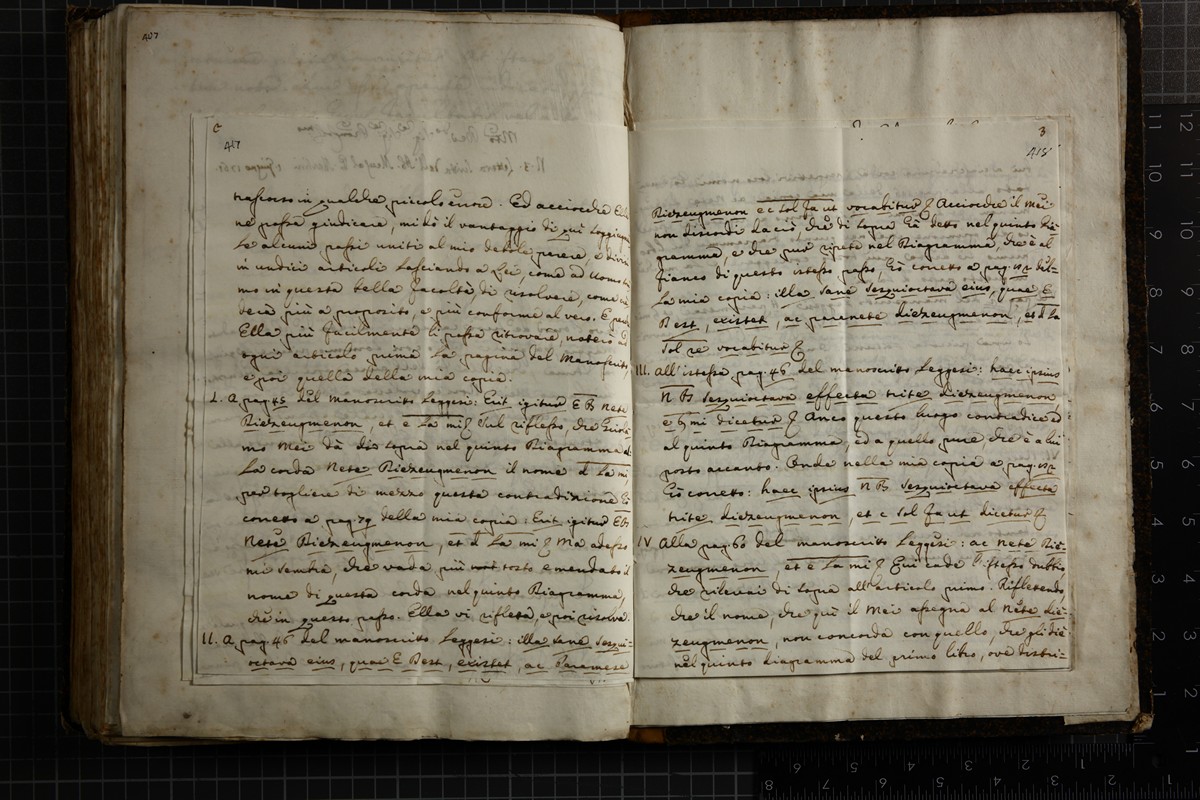 407
417
trascorso in qualche piccolo errore. Ed acciocchè Ella
ne possa giudicare, mi dò il vantaggio di qui soggiun
le alcuni passi uniti al mio debole parere, e divisi
in undici articoli lasciando a Lei, come ad Uomo
mo in questa bella facoltà, di risolvere, come
derà più a proposito, e più conforme al vero. E perchè
Ella più facilmente li possa ritrovare, noterò ad
ogni articolo prima la pagina del Manoscritto,
e poi quella della mia copia.
I. A pag. 45 del Manoscritto leggesi: Erit igitur E B Nete
Diezeugmenon, et e la mi. Sul riflesso, che
mo Mei dà di sopra nel quinto Diagramma al
la corda Nete Diezeugmenon il nome d la mi,
per togliere di mezzo questa contradizione Io
corretto a pag. 79 della mia copia: Erit igitur E B
Nete Diezeugmenon, et d la mi. Ma adesso
mi sembra, che vada più tosto emendato il
nome di questa corda nel quinto Diagramma,
che in questo passo. Ella vi rifletta, e poi risolva.
II. A pag. 46 del manoscritto leggesi: illa sane sesqui-
octava eius, quae E B est, existet, ac Paramese
3
418
Diezeugmenon e c sol fa ut vocabitur. Acciocchè il Mei
non discordi da ciò, che di sopra Ei detto nel quinto Dia-
gramma, e che pur ripete nel Diagramma, che è al
fianco di questo istesso passo, Io corretto a pag. del-
la mia copia: illa sane sesquioctava eius, quae E
B est, existet, ac paranete diezeugmenon, et d la
sol re vocabitur
III. All'istessa pag. 46 del manoscritto leggesi: haec ipsius
N B sesquioctava effecta trite diezeugmenon,
e ♮ mi dicetur. Anco questo luogo contradice
al quinto Diagramma, ed a quello pure che è a lui
posto accanto. Onde nella mia copia a pag.
Io corretto: haec ipsius N B sesquioctava effecta
trite diezeugmenon, et c sol fa ut dicetur
IV Alla pag. 60 del manoscritto leggesi: ac Nete Die-
zeugmenon, et e la mi. Qui cade l'istesso dubbio
che rilevai di sopra all'articolo primo. Riflettendo,
che il nome, che qui il Mei assegna al Nete die-
zeugmenon, non concorda con quello, che gli diè
nel quinto diagramma del primo libro, ove distri-